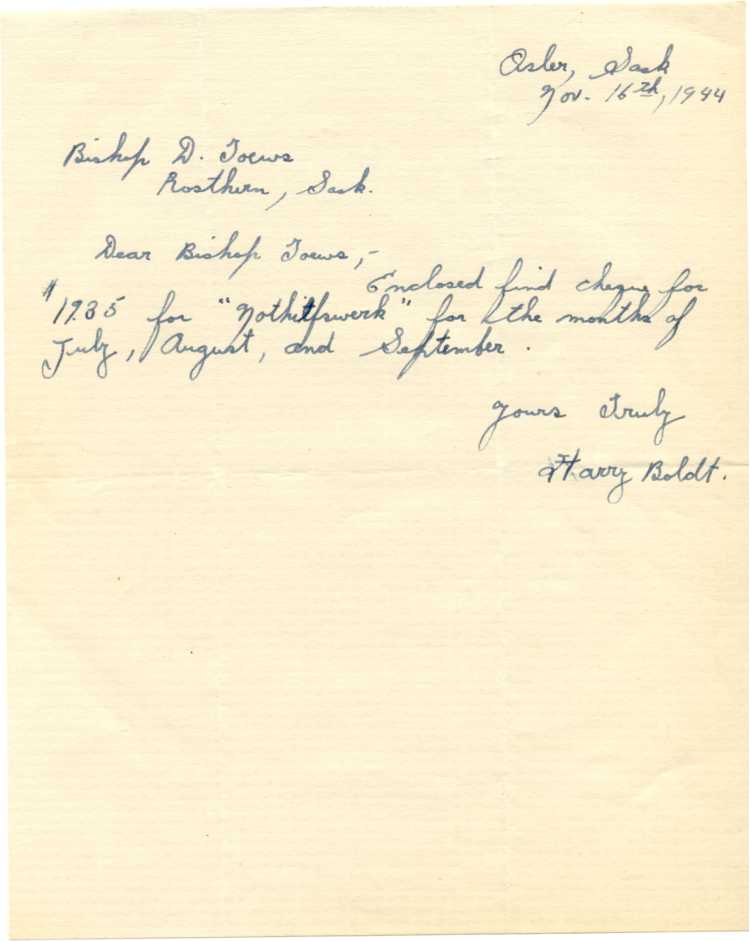 Osler, Sask
Nov. 16th, 1944
Bishop D. Toews
Rosthern, Sask.
Dear Bishop Toews,-
Enclosed find cheque for
$17.35 for "Nothilfswerk" for the months of
July, August, and September.
Yours Truly
Harry Boldt.